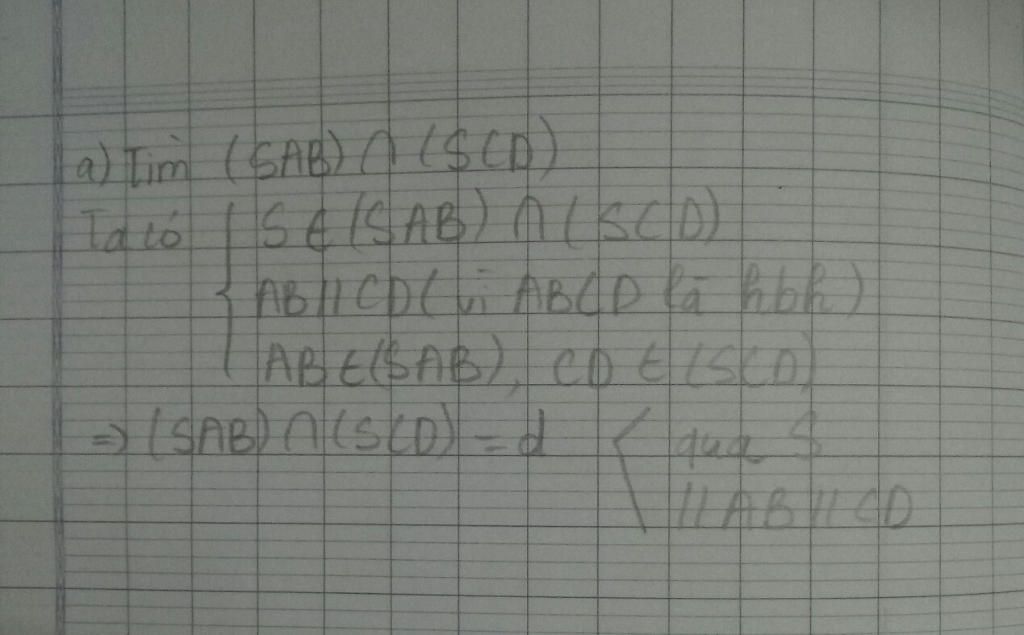 a) Tìm (SAB) ∩ (SCD)
Ta có { S ∈ (SAB) ∩ (SCD)
AB // CD (vì ABCD là hbh)
AB ∈ (SAB), CD ∈ (SCD)
=> (SAB) ∩ (SCD) = d < qua S
// AB // CD